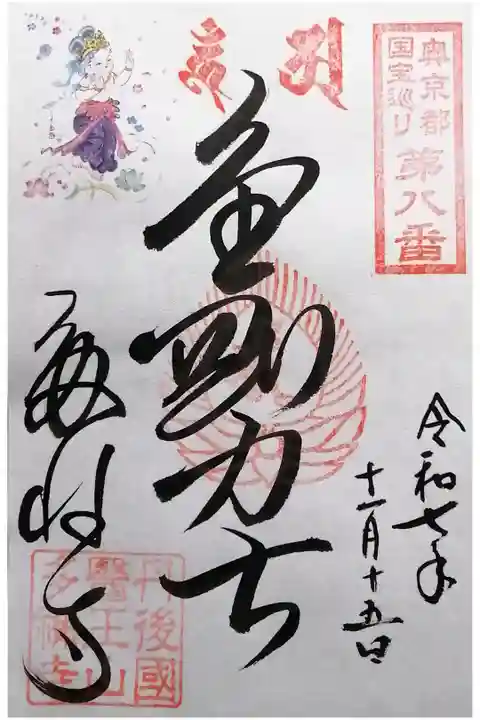 奥京都
国宝巡り 第八番
金剛力士
令和七年
十一月十五日
多祢寺
丹後國
醫王山
多祢寺